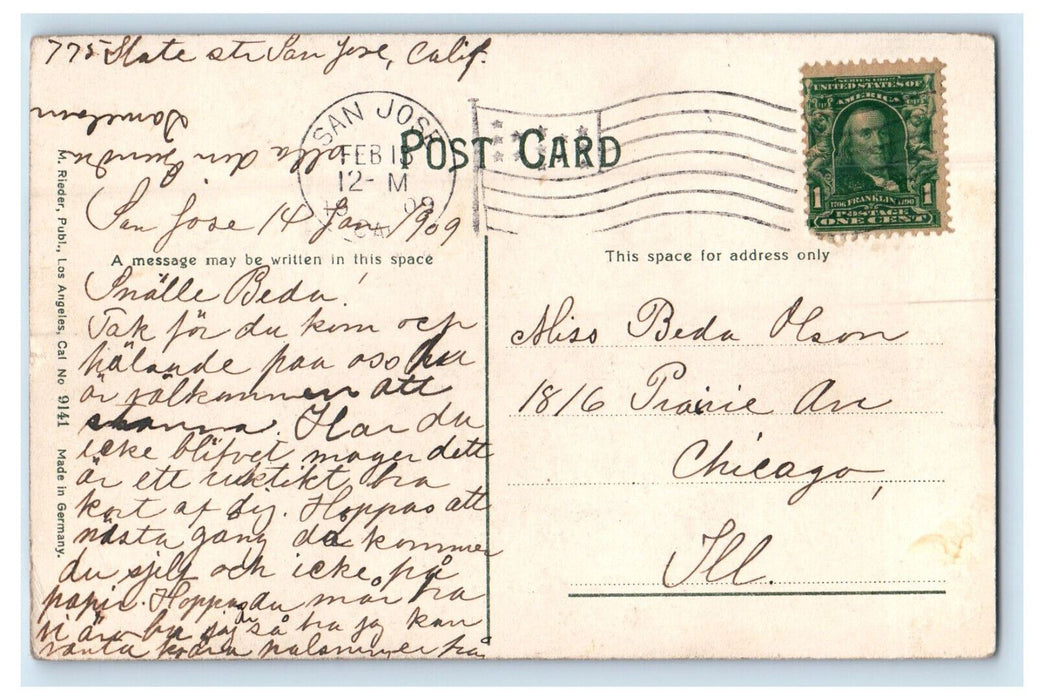 775 State str San Jose, Calif.
Danielson
alla din
SAN JOSE
FEB 15
12- M
09
CAL
POST CARD
SERIES 1902
UNITED STATES OF
AMERICA
1 1
1706 FRANKLIN 1790
POSTAGE
ONE CENT
San Jose 14 Jan 1909
A message may be written in this space
This space for address only
M. Rieder, Publ., Los Angeles, Cal No 9141 Made in Germany.
Snälle Beda!
Tak för du kom och
hälande paa oss
är välkommen att
stanna. Har du
icke blifvet mager dett
är ett riktikt bra
kort af dig. Hoppas att
nästa gang da kommer
du sjelf och icke på
papir. Hoppas du mår bra
vi är bra så bra jag kan
vänta
Miss Beda Olson
1816 Prairie Av
Chicago,
Ill.